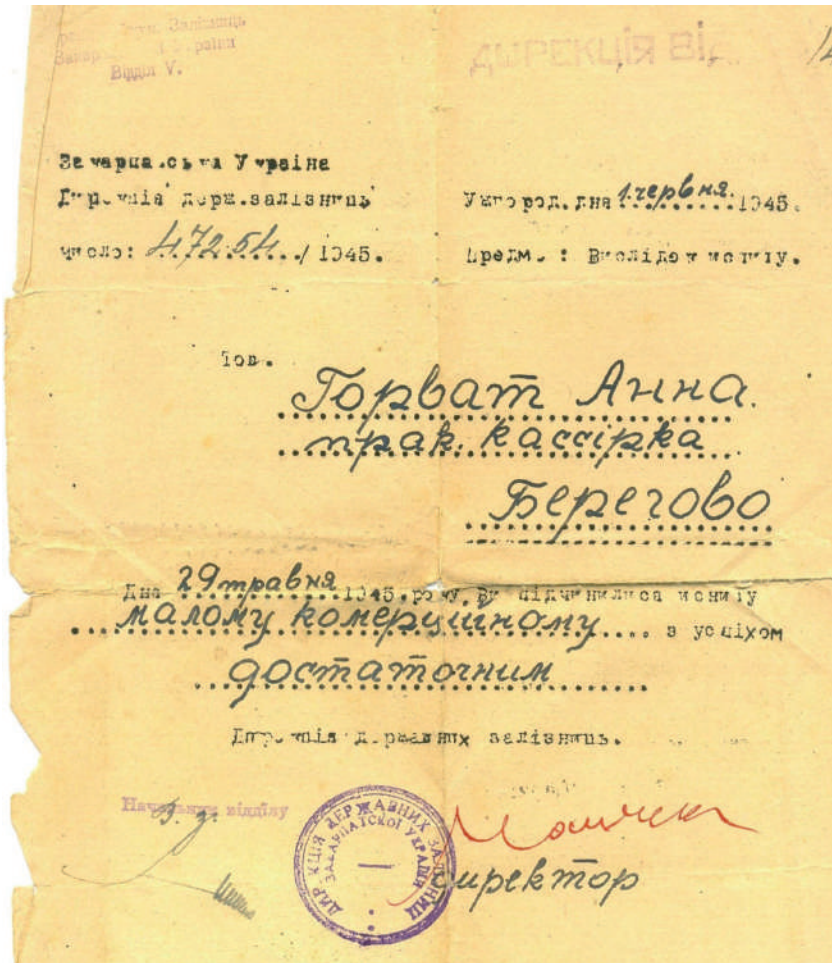 Залізниць
Відділ V.
ДИРЕКЦІЯ
Закарпатська Україна
Дирекція держ.залізниць
Ужгород.дня 1.червня.1945.
число: 47254/1945.
Предм.: Вислідок испиту.
Тов.
Горват Анна.
прак. кассірка
Берегово
Дна 29 травня 1945.року Ви підчинилися испиту
малому комерційному з успіхом
достаточним
Дирекція державних залізниць.
Начальник відділу
В. з.
ДИРЕКЦІЯ ДЕРЖАВНИХ ЗАЛІЗНИЦЬ
ЗАКАРПАТСКОЇ УКРАЇНИ
директор